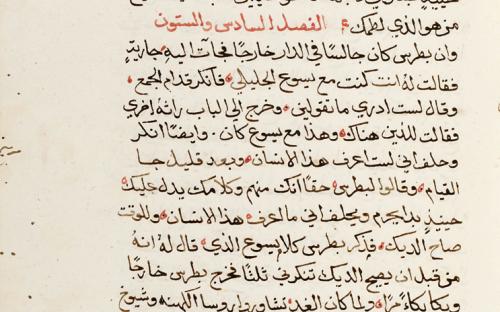 من هو الذي لطمك ؛ الفصل السادس والستون
وان بطرس كان جالسًا في الدار خارجًا فجآت اليه جاريةٍ
فقالت له انت كنت مع يسوع الجليلي فانكر قدام الجمع
وقال لست ادري ما تقولين وخرج الى الباب راته اخري
فقالت للذين هناك وهذا مع يسوع كان وايضًا انكر
وحلف اني لست اعرف هذا الانسان وبعد قليل جا
القيام وقالوا لبطرس حقًا انك منهم وكلامك يدل عليك
حينيذٍ بدا يحرم ويحلف اني ما اعرف هذا الانسان وللوقت
صاح الديك فذكر بطرس كلام يسوع الذي قال له انهُ
من قبل ان يصيح الديك تنكرني ثلثًا فخرج بطرس خارجًا
وبكا بكاءً مرًا ولما كان الغد تشاوروا روسا الكهنه وشيوخ